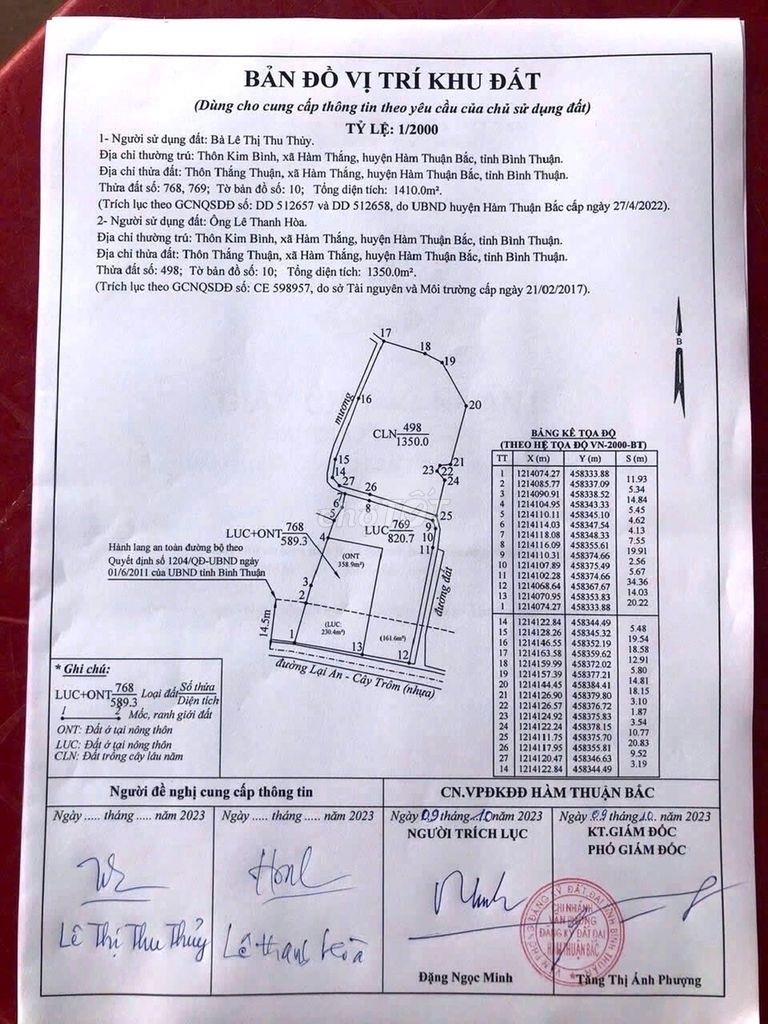 BẢN ĐỒ VỊ TRÍ KHU ĐẤT
(Dùng cho cung cấp thông tin theo yêu cầu của chủ sử dụng đất)
TỶ LỆ: 1/2000
1- Người sử dụng đất: Bà Lê Thị Thu Thủy.
Địa chỉ thường trú: Thôn Kim Bình, xã Hàm Thắng, huyện Hàm Thuận Bắc, tỉnh Bình Thuận.
Địa chỉ thửa đất: Thôn Thắng Thuận, xã Hàm Thắng, huyện Hàm Thuận Bắc, tỉnh Bình Thuận.
Thửa đất số: 768, 769; Tờ bản đồ số: 10; Tổng diện tích: 1410.0m².
(Trích lục theo GCNQSDĐ số: DD 512657 và DD 512658, do UBND huyện Hàm Thuận Bắc cấp ngày 27/4/2022).
2- Người sử dụng đất: Ông Lê Thanh Hòa.
Địa chỉ thường trú: Thôn Kim Bình, xã Hàm Thắng, huyện Hàm Thuận Bắc, tỉnh Bình Thuận.
Địa chỉ thửa đất: Thôn Thắng Thuận, xã Hàm Thắng, huyện Hàm Thuận Bắc, tỉnh Bình Thuận.
Thửa đất số: 498; Tờ bản đồ số: 10; Tổng diện tích: 1350.0m².
(Trích lục theo GCNQSDĐ số: CE 598957, do sở Tài nguyên và Môi trường cấp ngày 21/02/2017).
17
18
19
B
mương
16
20
CLN 498
1350.0
15
14
27
26
21
22
23
24
6
5
8
25
9
10
11
LUC+ONT 768
589.3
4
LUC 769
820.7
(ONT
358.9m²)
Hành lang an toàn đường bộ theo
Quyết định số 1204/QĐ-UBND ngày
01/6/2011 của UBND tỉnh Bình Thuận
3
2
đường đất
14.5m
(LUC:
230.4m²)
(161.6m²)
1
13
12
đường Lại An - Cây Trôm (nhựa)
BẢNG KÊ TỌA ĐỘ
(THEO HỆ TỌA ĐỘ VN-2000-BT)
TT X (m) Y (m) S (m)
1 1214074.27 458333.88
11.93
2 1214085.77 458337.09
5.34
3 1214090.91 458338.52
14.84
4 1214104.95 458343.33
5.45
5 1214110.11 458345.10
4.62
6 1214114.03 458347.54
4.13
7 1214118.08 458348.33
7.55
8 1214116.09 458355.61
19.91
9 1214110.31 458374.66
2.56
10 1214107.89 458375.49
5.67
11 1214102.28 458374.66
34.36
12 1214068.64 458367.67
14.03
13 1214070.95 458353.83
20.22
1 1214074.27 458333.88
14 1214122.84 458344.49
5.48
15 1214128.26 458345.32
19.54
16 1214146.55 458352.19
18.58
17 1214163.58 458359.62
12.91
18 1214159.99 458372.02
5.80
19 1214157.39 458377.21
14.81
20 1214144.45 458384.41
18.15
21 1214126.90 458379.80
3.10
22 1214126.57 458376.72
1.87
23 1214124.92 458375.83
3.54
24 1214122.24 458378.15
10.77
25 1214111.75 458375.70
20.83
26 1214117.95 458355.81
9.52
27 1214120.47 458346.63
3.19
14 1214122.84 458344.49
* Ghi chú:
LUC+ONT 768 Loại đất Số thửa
589.3 Diện tích
1 2 Mốc, ranh giới đất
ONT: Đất ở tại nông thôn
LUC: Đất ở tại nông thôn
CLN: Đất trồng cây lâu năm
Người đề nghị cung cấp thông tin
CN.VPĐKĐĐ HÀM THUẬN BẮC
Ngày ..... tháng ..... năm 2023
Ngày ..... tháng ..... năm 2023
Ngày 09 tháng 10 năm 2023
NGƯỜI TRÍCH LỤC
Ngày 09 tháng 10 năm 2023
KT.GIÁM ĐỐC
PHÓ GIÁM ĐỐC
Lê Thị Thu Thủy
Lê Thanh Hòa
CHI NHÁNH
VĂN PHÒNG
ĐĂNG KÝ ĐẤT ĐAI
HÀM THUẬN BẮC
Đặng Ngọc Minh
Tăng Thị Ánh Phượng